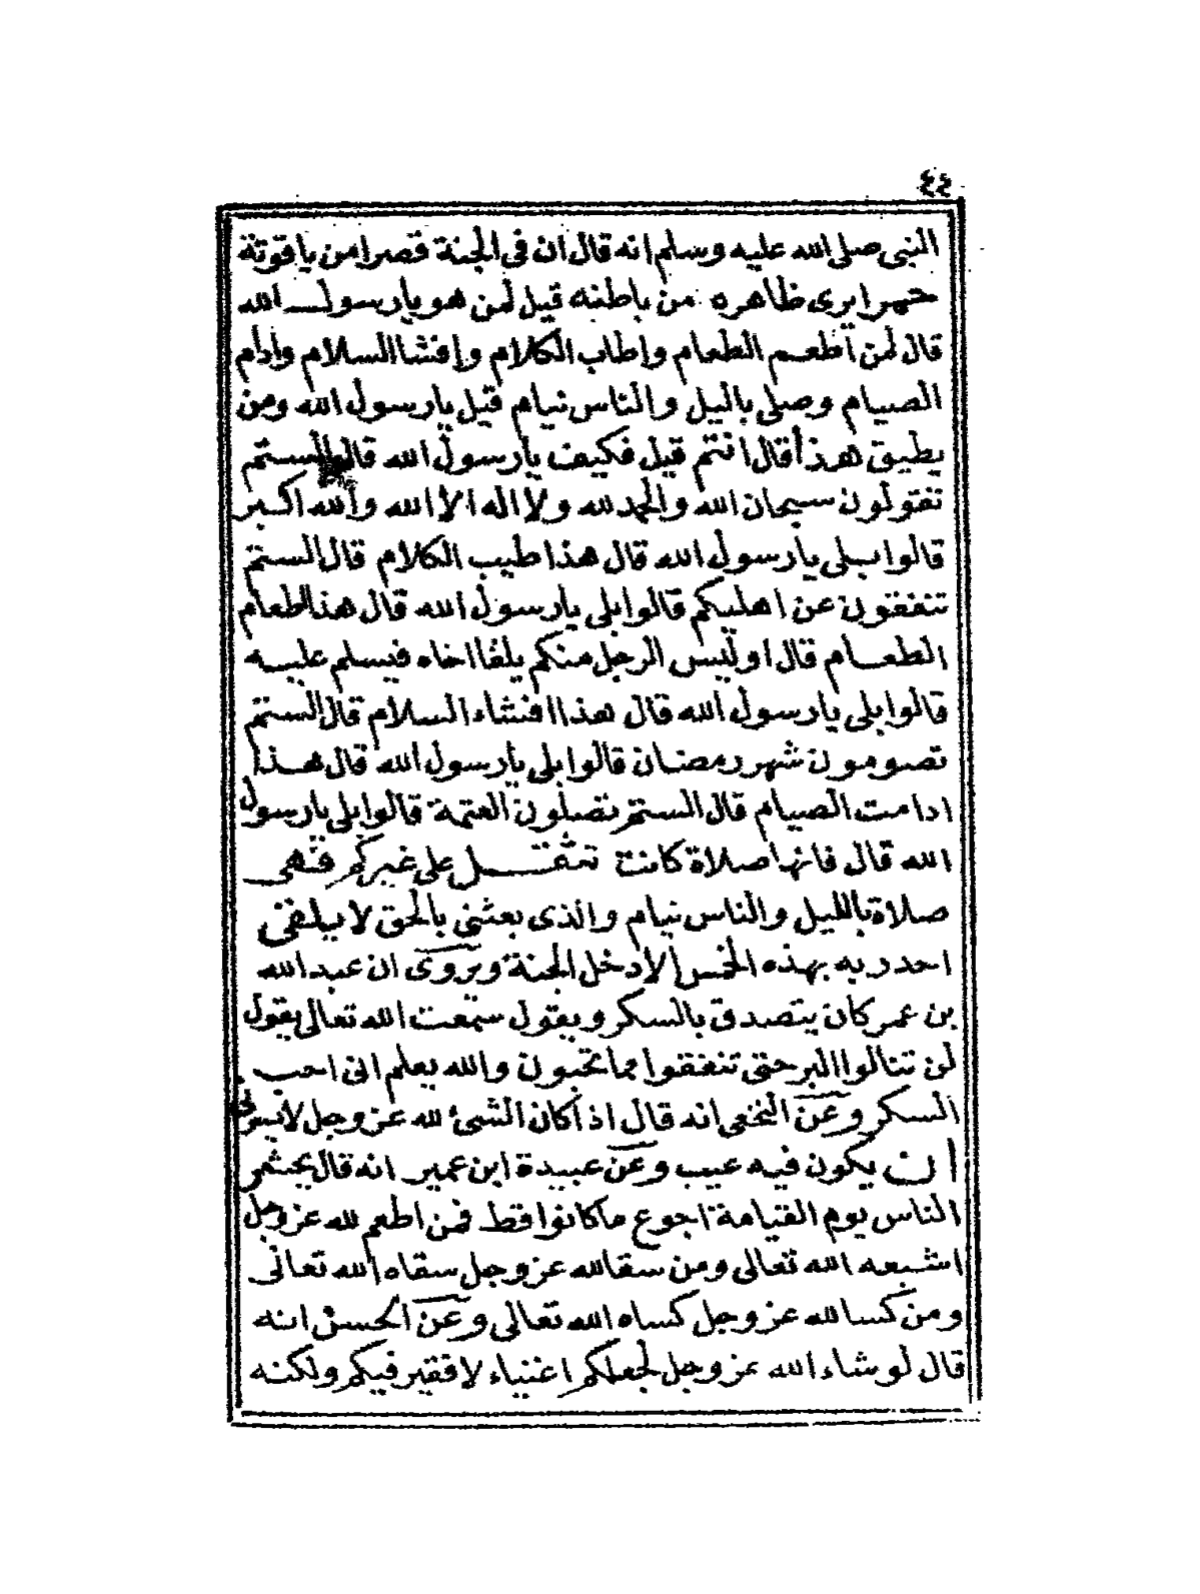 ٤٤
النبي صلى الله عليه وسلم انه قال ان فى الجنة قصرا من ياقوتة
حمرا يرى ظاهره من باطنه قيل لمن هو يا رسول الله
قال لمن أطعم الطعام واطاب الكلام وافشا السلام وادام
الصيام وصلى بالليل والناس نيام قيل يا رسول الله ومن
يطيق هذا قال انتم قيل فكيف يا رسول الله قال الستم
تقولون سبحان الله والحمد لله ولا اله الا الله والله اكبر
قالوا بلى يا رسول الله قال هذا طيب الكلام قال الستم
تنفقون عن اهليكم قالوا بلى يا رسول الله قال هذا اطعام
الطعام قال اوليس الرجل منكم يلقا اخاه فيسلم عليه
قالوا بلى يا رسول الله قال هذا افشاء السلام قال الستم
تصومون شهر رمضان قالوا بلى يا رسول الله قال هذا
ادامت الصيام قال الستم تصلون العتمة قالوا بلى يا رسول
الله قال فانها صلاة كانت تثقل على غيركم فهى
صلاة بالليل والناس نيام والذى بعثنى بالحق لا يلقى
احد ربه بهذه الخمس الا دخل الجنة ويروى ان عبد الله
بن عمر كان يتصدق بالسكر ويقول سمعت الله تعالى يقول
لن تنالوا البر حتى تنفقوا مما تحبون والله يعلم انى احب
السكر وعن النخعى انه قال اذا كان الشئ لله عز وجل لا يسرنى
ان يكون فيه عيب وعن عبيدة ابن عمير انه قال يحشر
الناس يوم القيامة اجوع ما كانوا قط فمن اطعم لله عز وجل
اشبعه الله تعالى ومن سقا لله عز وجل سقاه الله تعالى
ومن كسا لله عز وجل كساه الله تعالى وعن الحسن انه
قال لو شاء الله عز وجل لجعلكم اغنياء لا فقير فيكم ولكنه